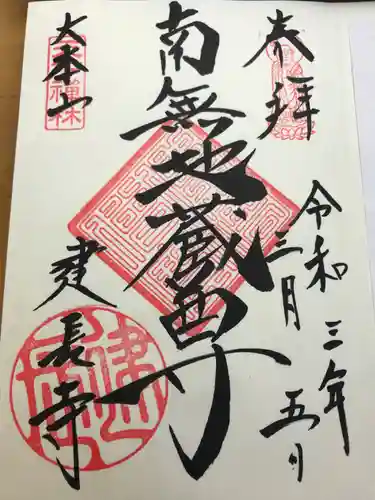 奉拝
令和三年
三月五日
南無地蔵尊
大本山
建長寺